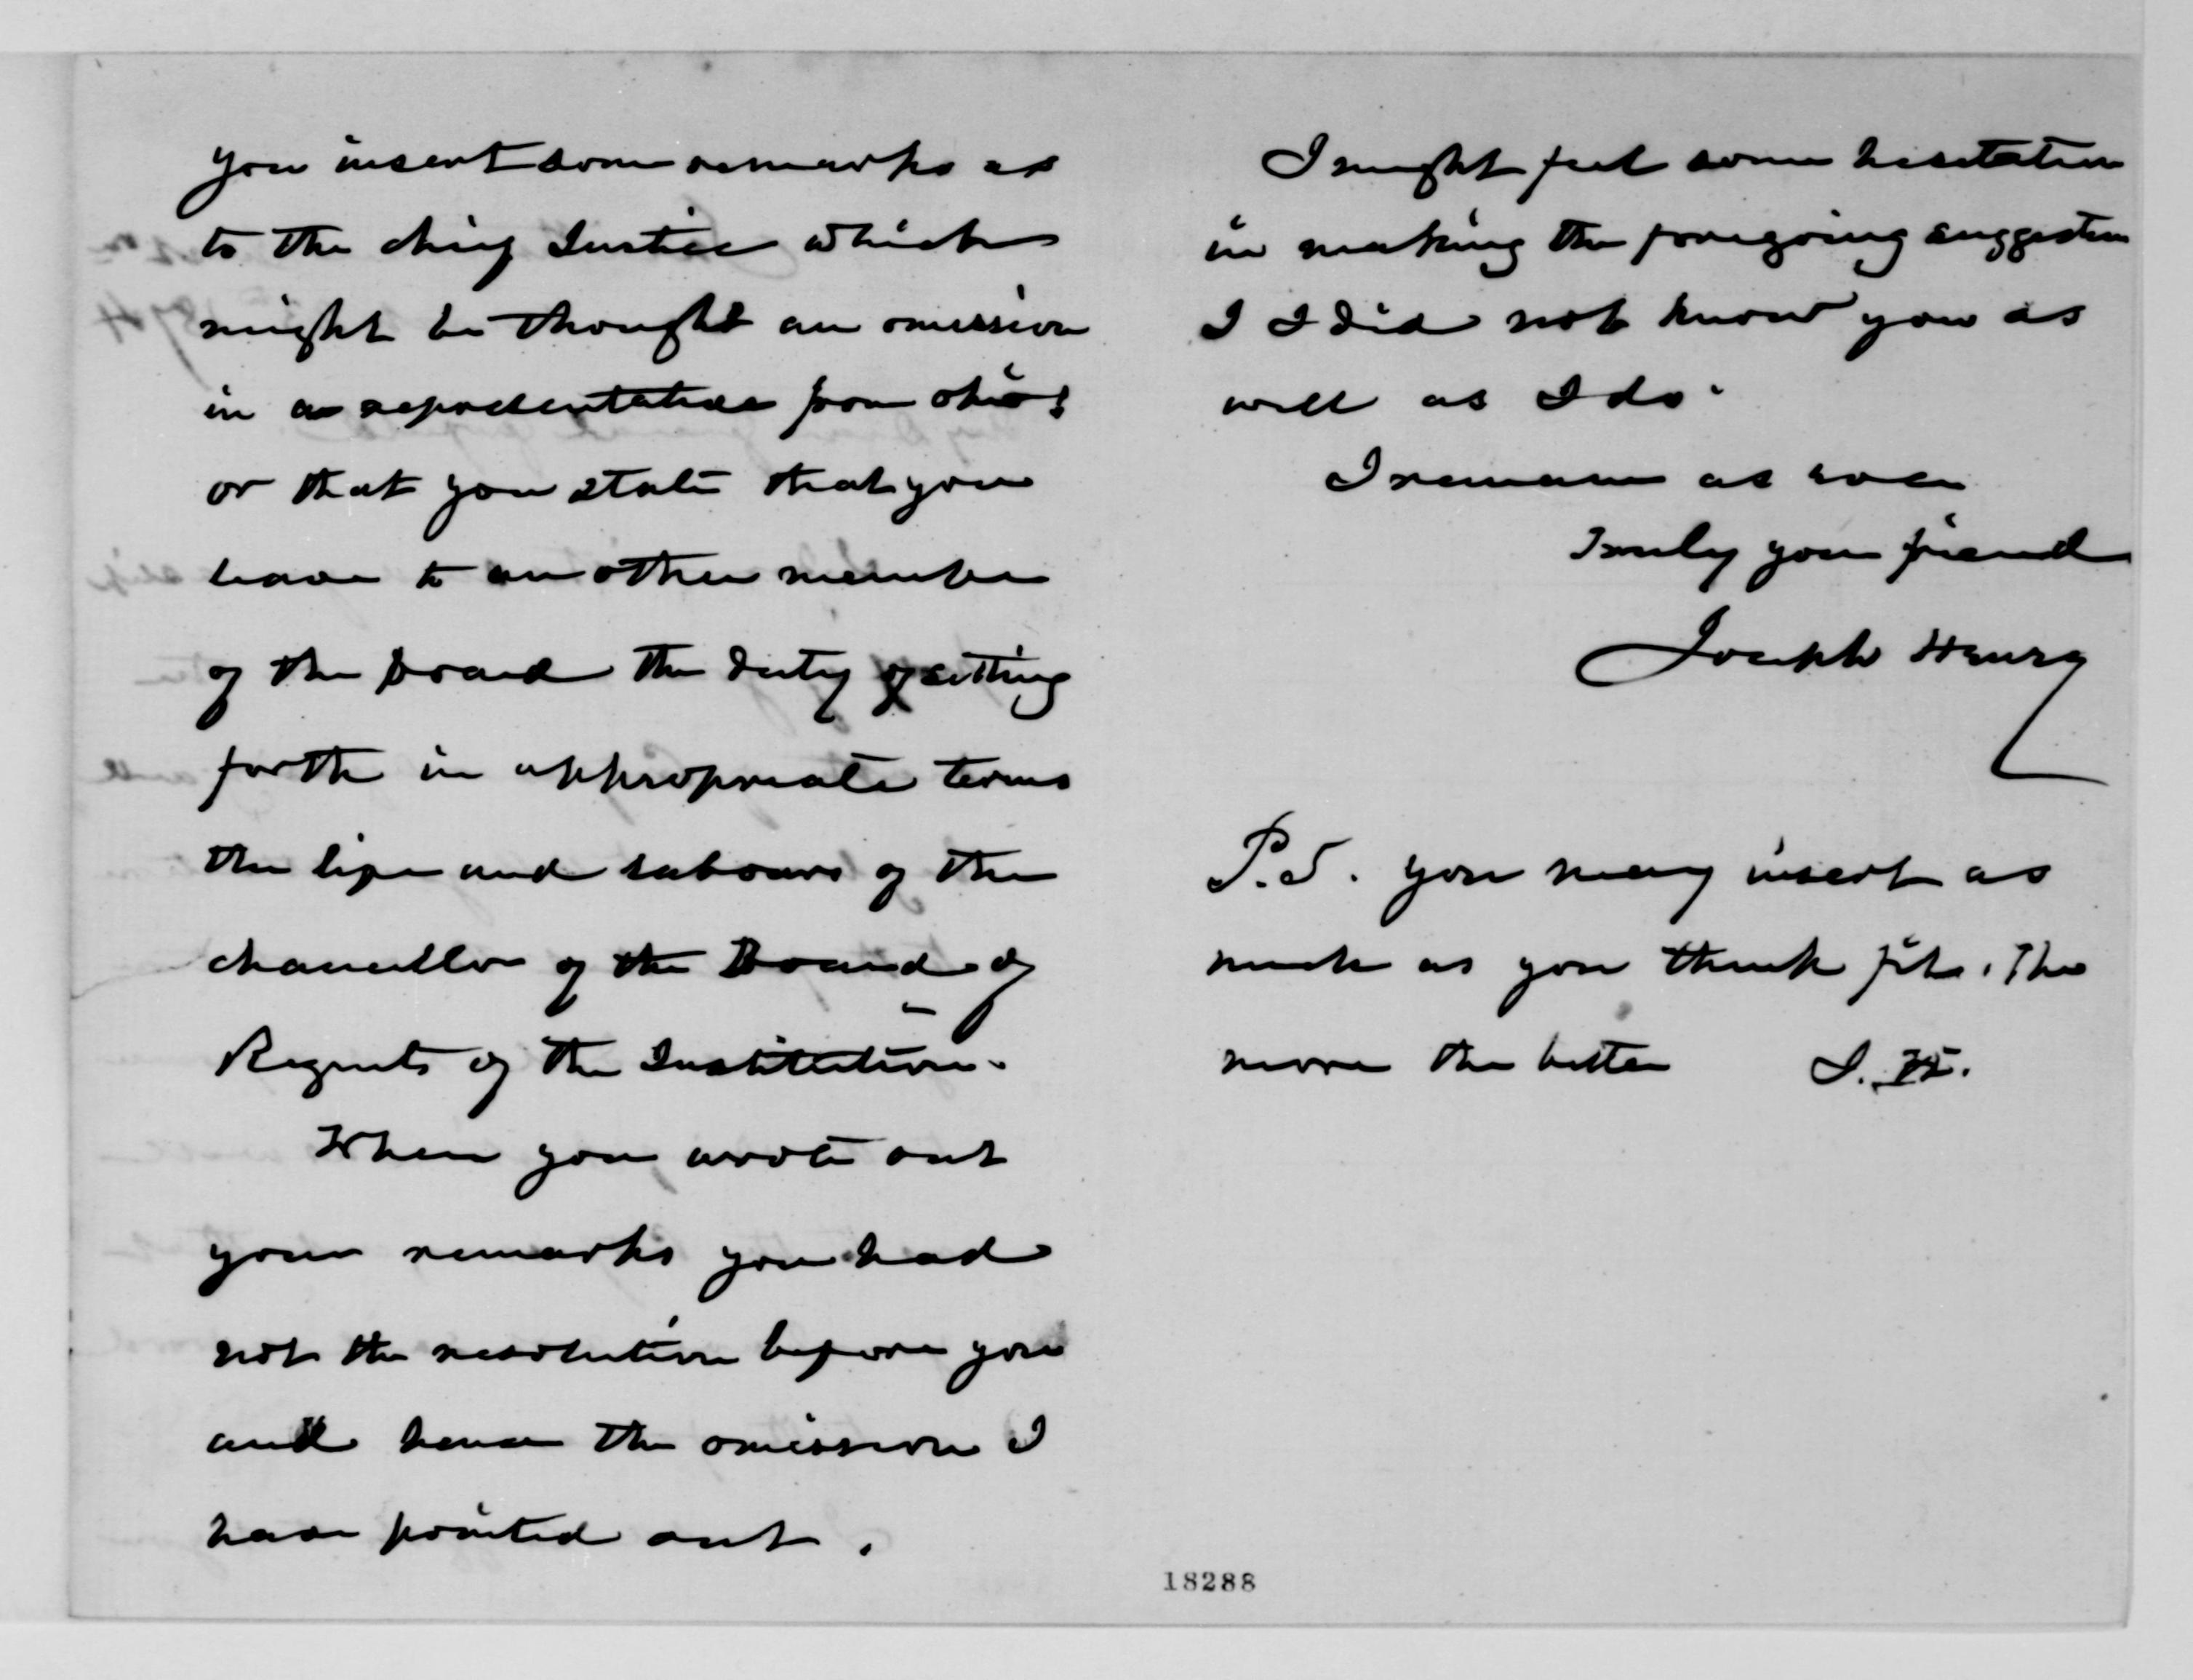 you insert some remarks as
to the chief Justice which
might be thought an omission
in a representative from Ohio;
or that you state that you
leave to another member
of the board the duty of setting
forth in appropriate terms
the life and labours of the
chancellor of the Board of
Regents of the Institution.
When you wrote out
your remarks you had
not the resolution before you
and hence the omission I
have pointed out.
I might feel some hesitation
in making the foregoing suggestion
I I did not know you as
well as I do.
I remain as ever
Truly your friend
Joseph Henry
P.S. you may insert as
much as you think fit. The
more the better J. H.
18288